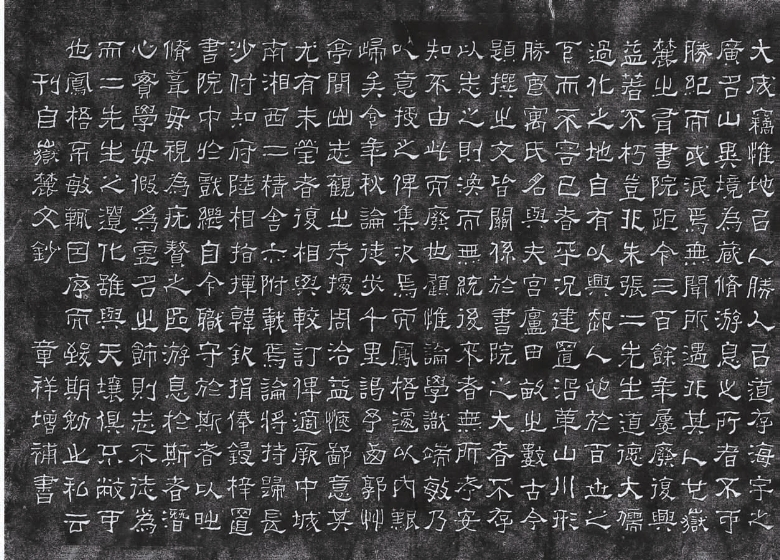 大成竊惟地㠯人勝人㠯道存海宇之
廣名山異境為藏脩游息之所者不可
勝紀而或泯焉無聞所遇非其人也嶽
麓之有書院距今三百餘年屢廢復興
益著不朽豈非朱張二先生道德大儒
過化之地自有以興起人心於百世之
下而不容已者乎況建置沿革山川形
勝官寓氏名與夫宮廬田畝之數古今
題撰之文皆關係於書院之大者不存
以志之則渙而無統後來者無所考安
知不由此而廢也顧惟論學識端敏乃
以意授之俾集次焉而鳳梧還以內艱
歸矣今年秋論徒步千里謁予西郭艸
亭間出志觀之考據周洽益愜鄙意其
尤有未瑩者復相與較訂俾適厥中城
南湘西二精舍亦附載焉論將持歸長
沙付知府陸相指揮韓欽捐俸鋟梓置
書院中於戲繼自今職守於斯者以時
脩葺毋視為疣贅之區游息於斯者潛
心實學毋假爲虛名之飾則志不徒為
而二先生之遺化雖與天壤俱不敝可
也鳳梧不敏輒因序而致期勉之私云
刊自嶽麓文鈔 章祥增補書